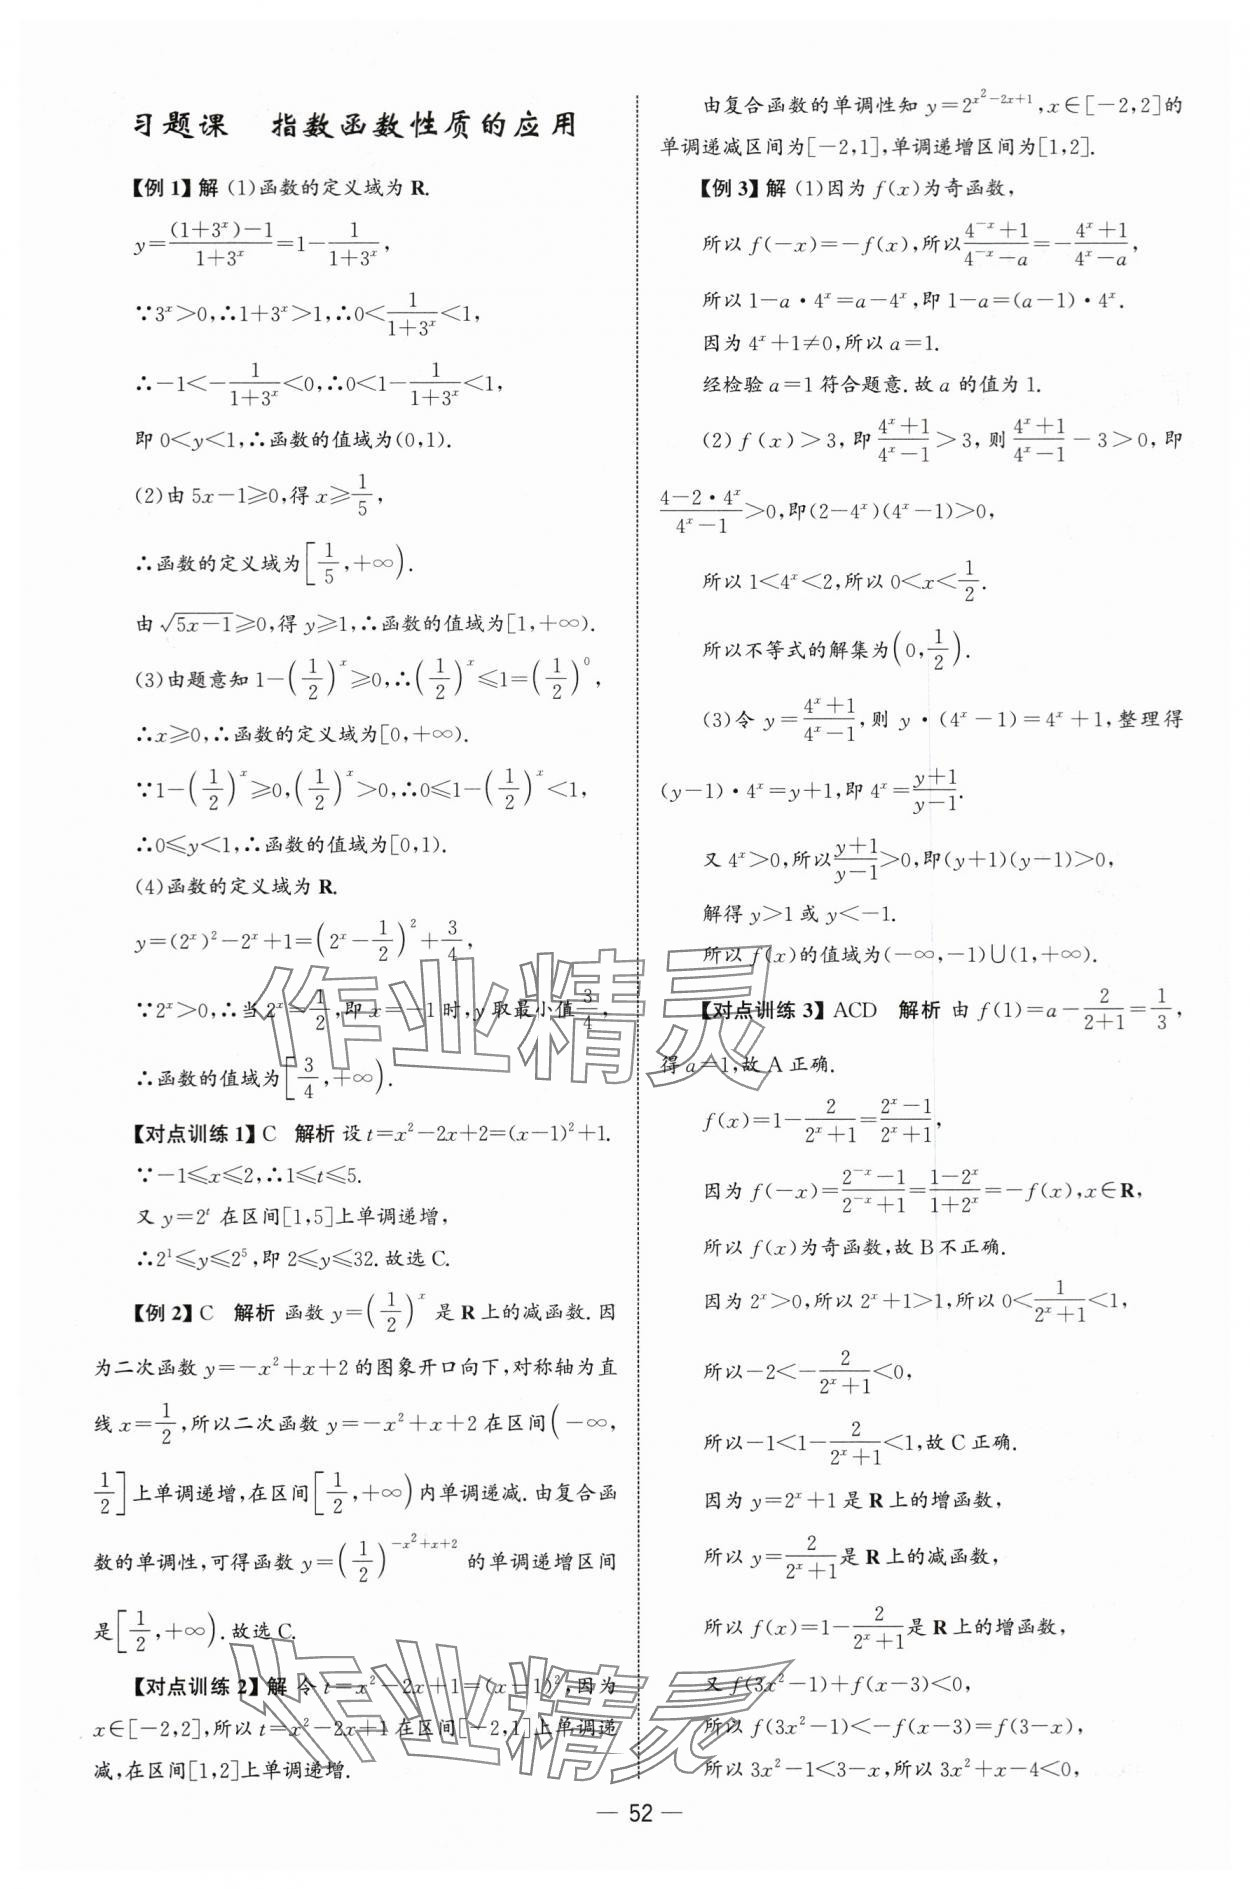 习题课　指数函数性质的应用
【例1】解 (1)函数的定义域为 R.
y=\frac{(1+3^x)-1}{1+3^x}=1-\frac{1}{1+3^x},
∵3^x>0,∴1+3^x>1,∴0<\frac{1}{1+3^x}<1,
∴-1<-\frac{1}{1+3^x}<0,∴0<1-\frac{1}{1+3^x}<1,
即 0<y<1,∴函数的值域为(0,1).
(2)由 5x-1≥0,得 x≥\frac{1}{5},
∴函数的定义域为[\frac{1}{5},+∞).
由 \sqrt{5x-1}≥0,得 y≥1,∴函数的值域为[1,+∞).
(3)由题意知 1-(\frac{1}{2})^x≥0,∴(\frac{1}{2})^x≤1=(\frac{1}{2})^0,
∴x≥0,∴函数的定义域为[0,+∞).
∵1-(\frac{1}{2})^x≥0,(\frac{1}{2})^x>0,∴0≤1-(\frac{1}{2})^x<1,
∴0≤y<1,∴函数的值域为[0,1).
(4)函数的定义域为 R.
y=(2^x)^2-2^x+1=(2^x-\frac{1}{2})^2+\frac{3}{4},
∵2^x>0,∴当 2^x=\frac{1}{2},即 x=-1 时,y 取最小值\frac{3}{4},
∴函数的值域为[\frac{3}{4},+∞).
【对点训练1】C　解析 设 t=x^2-2x+2=(x-1)^2+1.
∵-1≤x≤2,∴1≤t≤5.
又 y=2^t 在区间[1,5]上单调递增,
∴2^1≤y≤2^5,即 2≤y≤32.故选C.
【例2】C　解析 函数 y=(\frac{1}{2})^x 是 R 上的减函数.因
为二次函数 y=-x^2+x+2 的图象开口向下,对称轴为直
线 x=\frac{1}{2},所以二次函数 y=-x^2+x+2 在区间(-∞,
\frac{1}{2}]上单调递增,在区间[\frac{1}{2},+∞)内单调递减.由复合函
数的单调性,可得函数 y=(\frac{1}{2})^{-x^2+x+2} 的单调递增区间
是[\frac{1}{2},+∞).故选C.
【对点训练2】解 令 t=x^2-2x+1=(x-1)^2,因为
x∈[-2,2],所以 t=x^2-2x+1 在区间[-2,1]上单调递
减,在区间[1,2]上单调递增.
由复合函数的单调性知 y=2^{x^2-2x+1},x∈[-2,2]的
单调递减区间为[-2,1],单调递增区间为[1,2].
【例3】解 (1)因为 f(x)为奇函数,
所以 f(-x)=-f(x),所以\frac{4^{-x}+1}{4^{-x}-a}=-\frac{4^x+1}{4^x-a},
所以 1-a·4^x=a-4^x,即 1-a=(a-1)·4^x.
因为 4^x+1≠0,所以 a=1.
经检验 a=1 符合题意.故 a 的值为 1.
(2) f(x)>3,即\frac{4^x+1}{4^x-1}>3,则\frac{4^x+1}{4^x-1}-3>0,即
\frac{4-2·4^x}{4^x-1}>0,即(2-4^x)(4^x-1)>0,
所以 1<4^x<2,所以 0<x<\frac{1}{2}.
所以不等式的解集为(0,\frac{1}{2}).
(3)令 y=\frac{4^x+1}{4^x-1},则 y·(4^x-1)=4^x+1,整理得
(y-1)·4^x=y+1,即 4^x=\frac{y+1}{y-1}.
又 4^x>0,所以\frac{y+1}{y-1}>0,即(y+1)(y-1)>0,
解得 y>1 或 y<-1.
所以 f(x)的值域为(-∞,-1)∪(1,+∞).
【对点训练3】ACD　解析 由 f(1)=a-\frac{2}{2+1}=\frac{1}{3},
得 a=1,故 A 正确.
f(x)=1-\frac{2}{2^x+1}=\frac{2^x-1}{2^x+1},
因为 f(-x)=\frac{2^{-x}-1}{2^{-x}+1}=\frac{1-2^x}{1+2^x}=-f(x),x∈R,
所以 f(x)为奇函数,故 B 不正确.
因为 2^x>0,所以 2^x+1>1,所以 0<\frac{1}{2^x+1}<1,
所以-2<-\frac{2}{2^x+1}<0,
所以-1<1-\frac{2}{2^x+1}<1,故 C 正确.
因为 y=2^x+1 是 R 上的增函数,
所以 y=\frac{2}{2^x+1}是 R 上的减函数,
所以 f(x)=1-\frac{2}{2^x+1}是 R 上的增函数,
又 f(3x^2-1)+f(x-3)<0,
所以 f(3x^2-1)<-f(x-3)=f(3-x),
所以 3x^2-1<3-x,所以 3x^2+x-4<0,
— 52 —
作业精灵
作业精灵